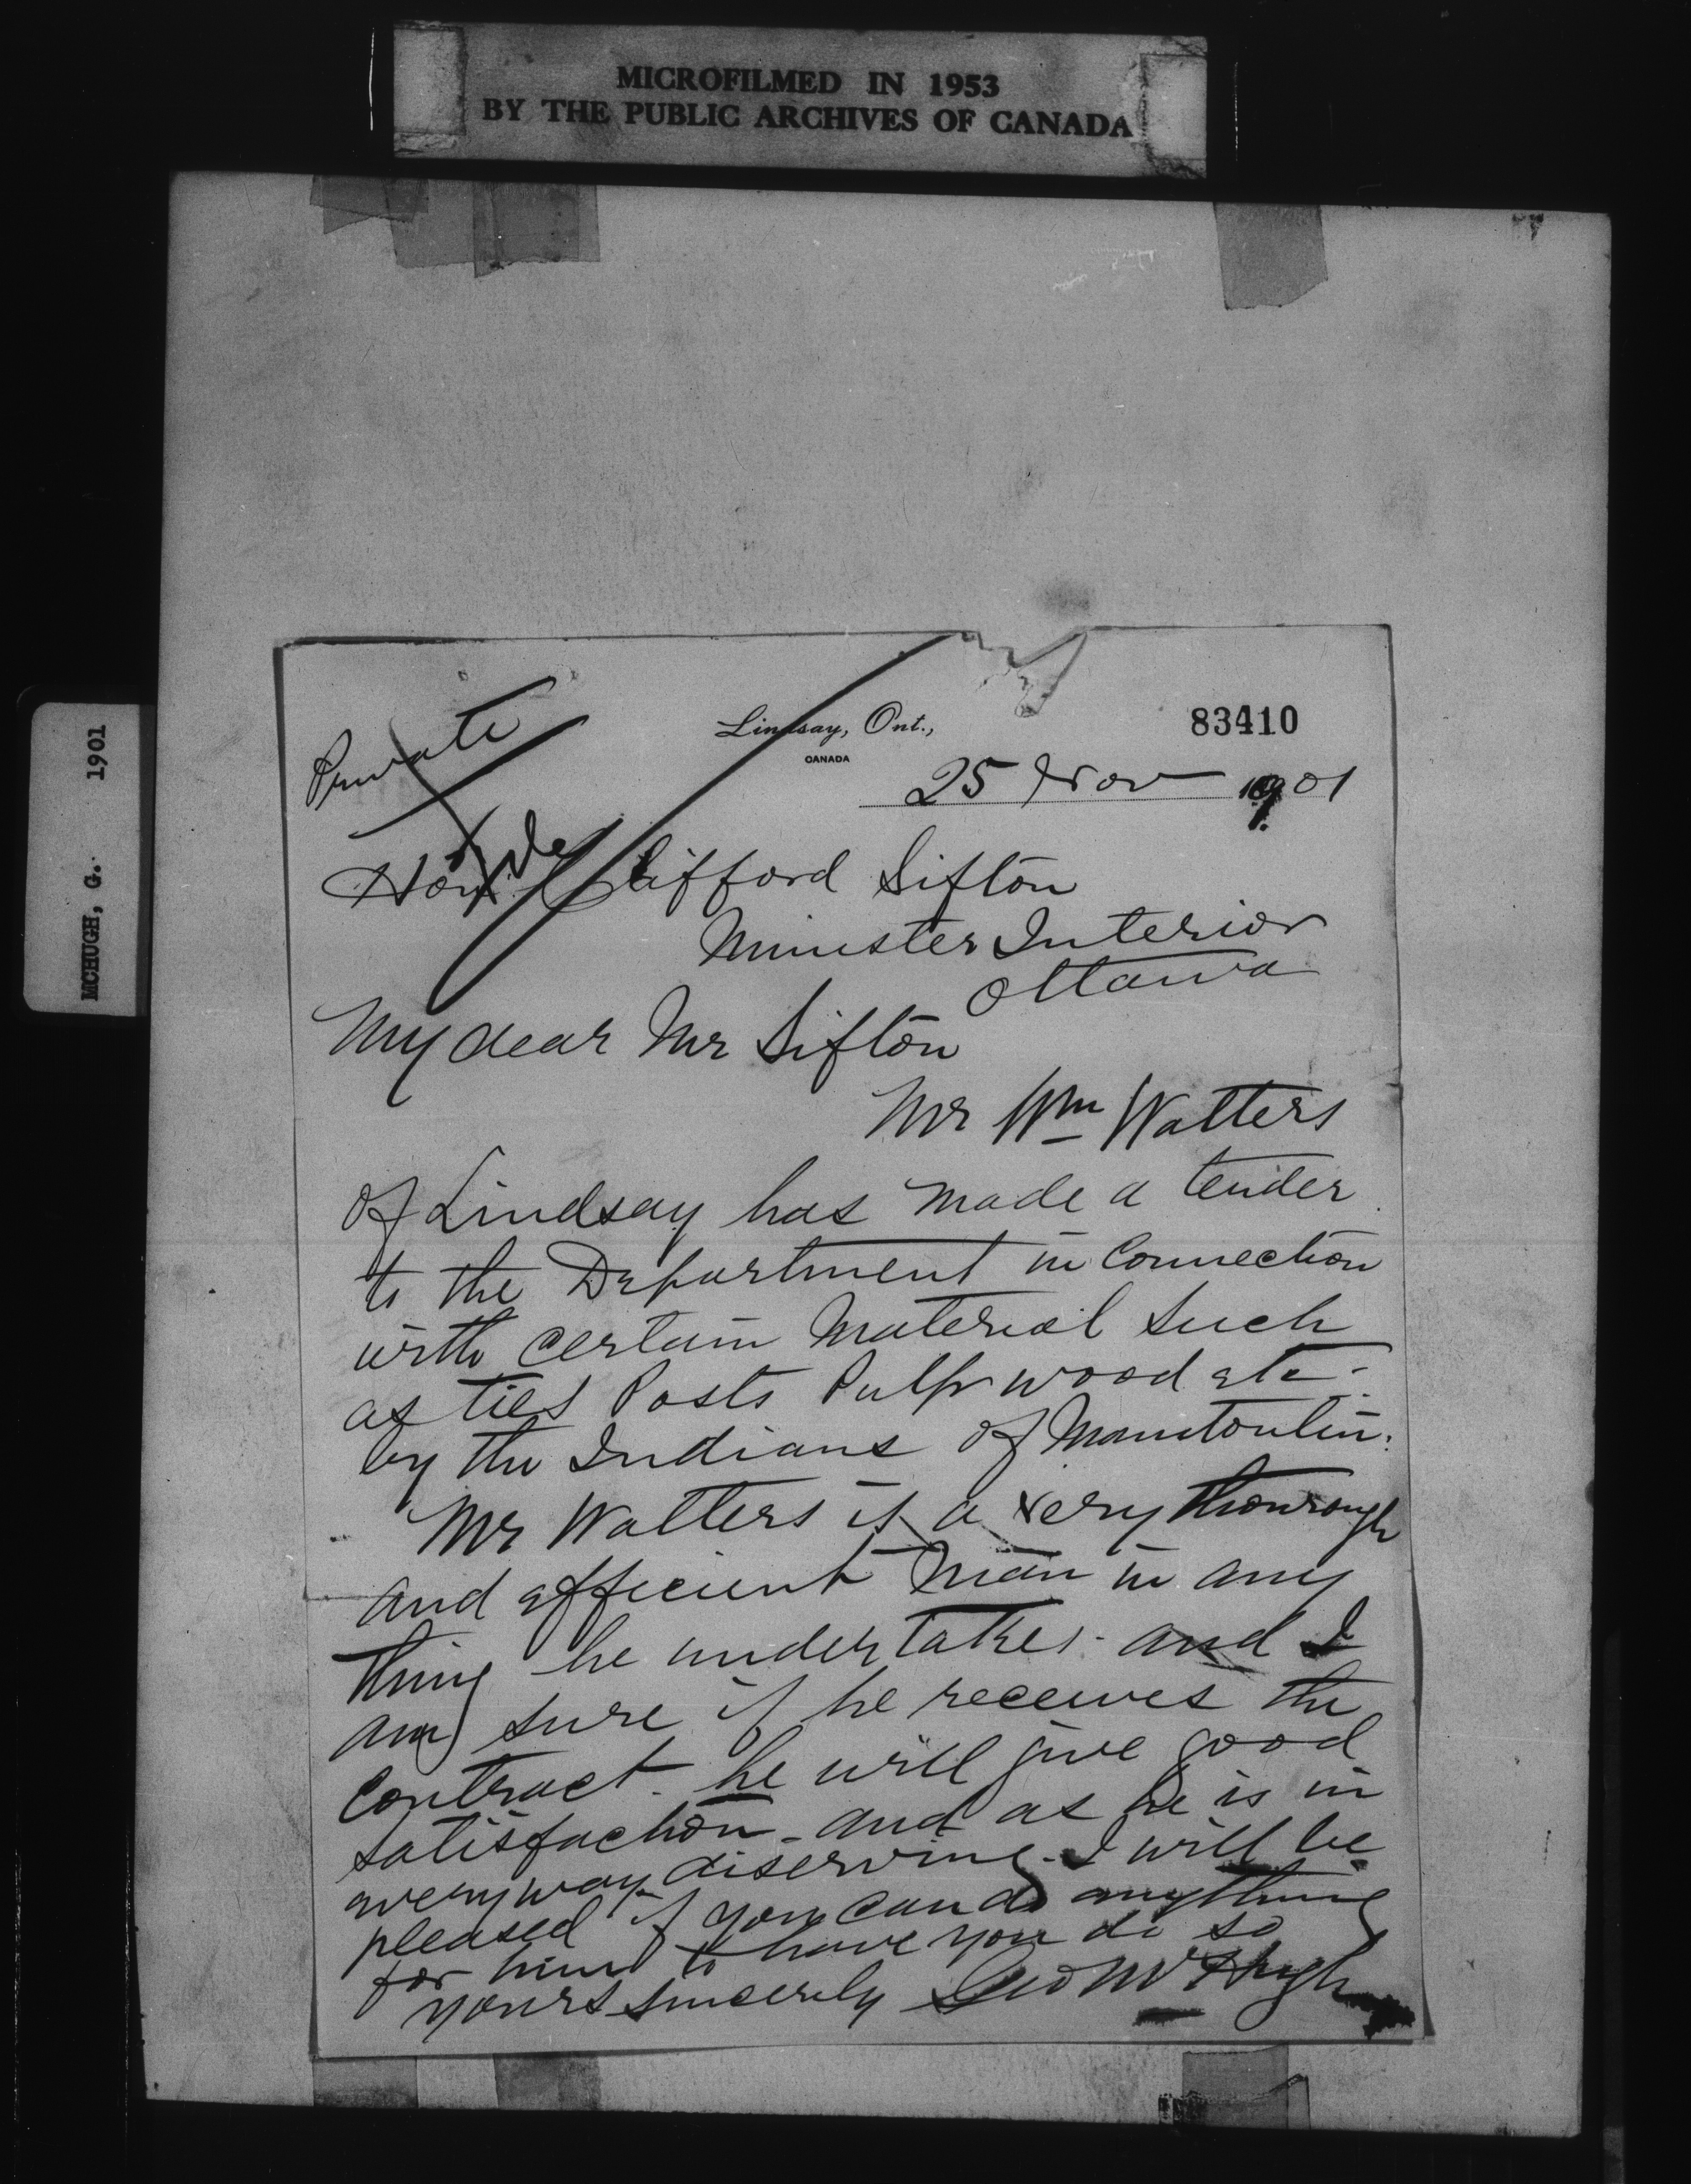 MICROFILMED IN 1953
BY THE PUBLIC ARCHIVES OF CANADA
MCHUGH, G. 1901
Private
Lindsay, Ont.,
CANADA
83410
25 Nov 1901
Hon Clifford Sifton
Minister Interior
Ottawa
My dear Mr Sifton
Mr Wm Watters
of Lindsay has made a tender
to the Department in Connection
with certain Material Such
as ties Posts Pulp wood etc.
by the Indians of Manitoulin.
Mr Watters is a very thourough
and efficient man in any
thing he undertakes - and I
am sure if he receives the
Contract - he will give good
satisfaction - and as he is in
every way diserving - I will be
pleased if you can do anything
for him to have you do so
yours sincerely Geo McHugh